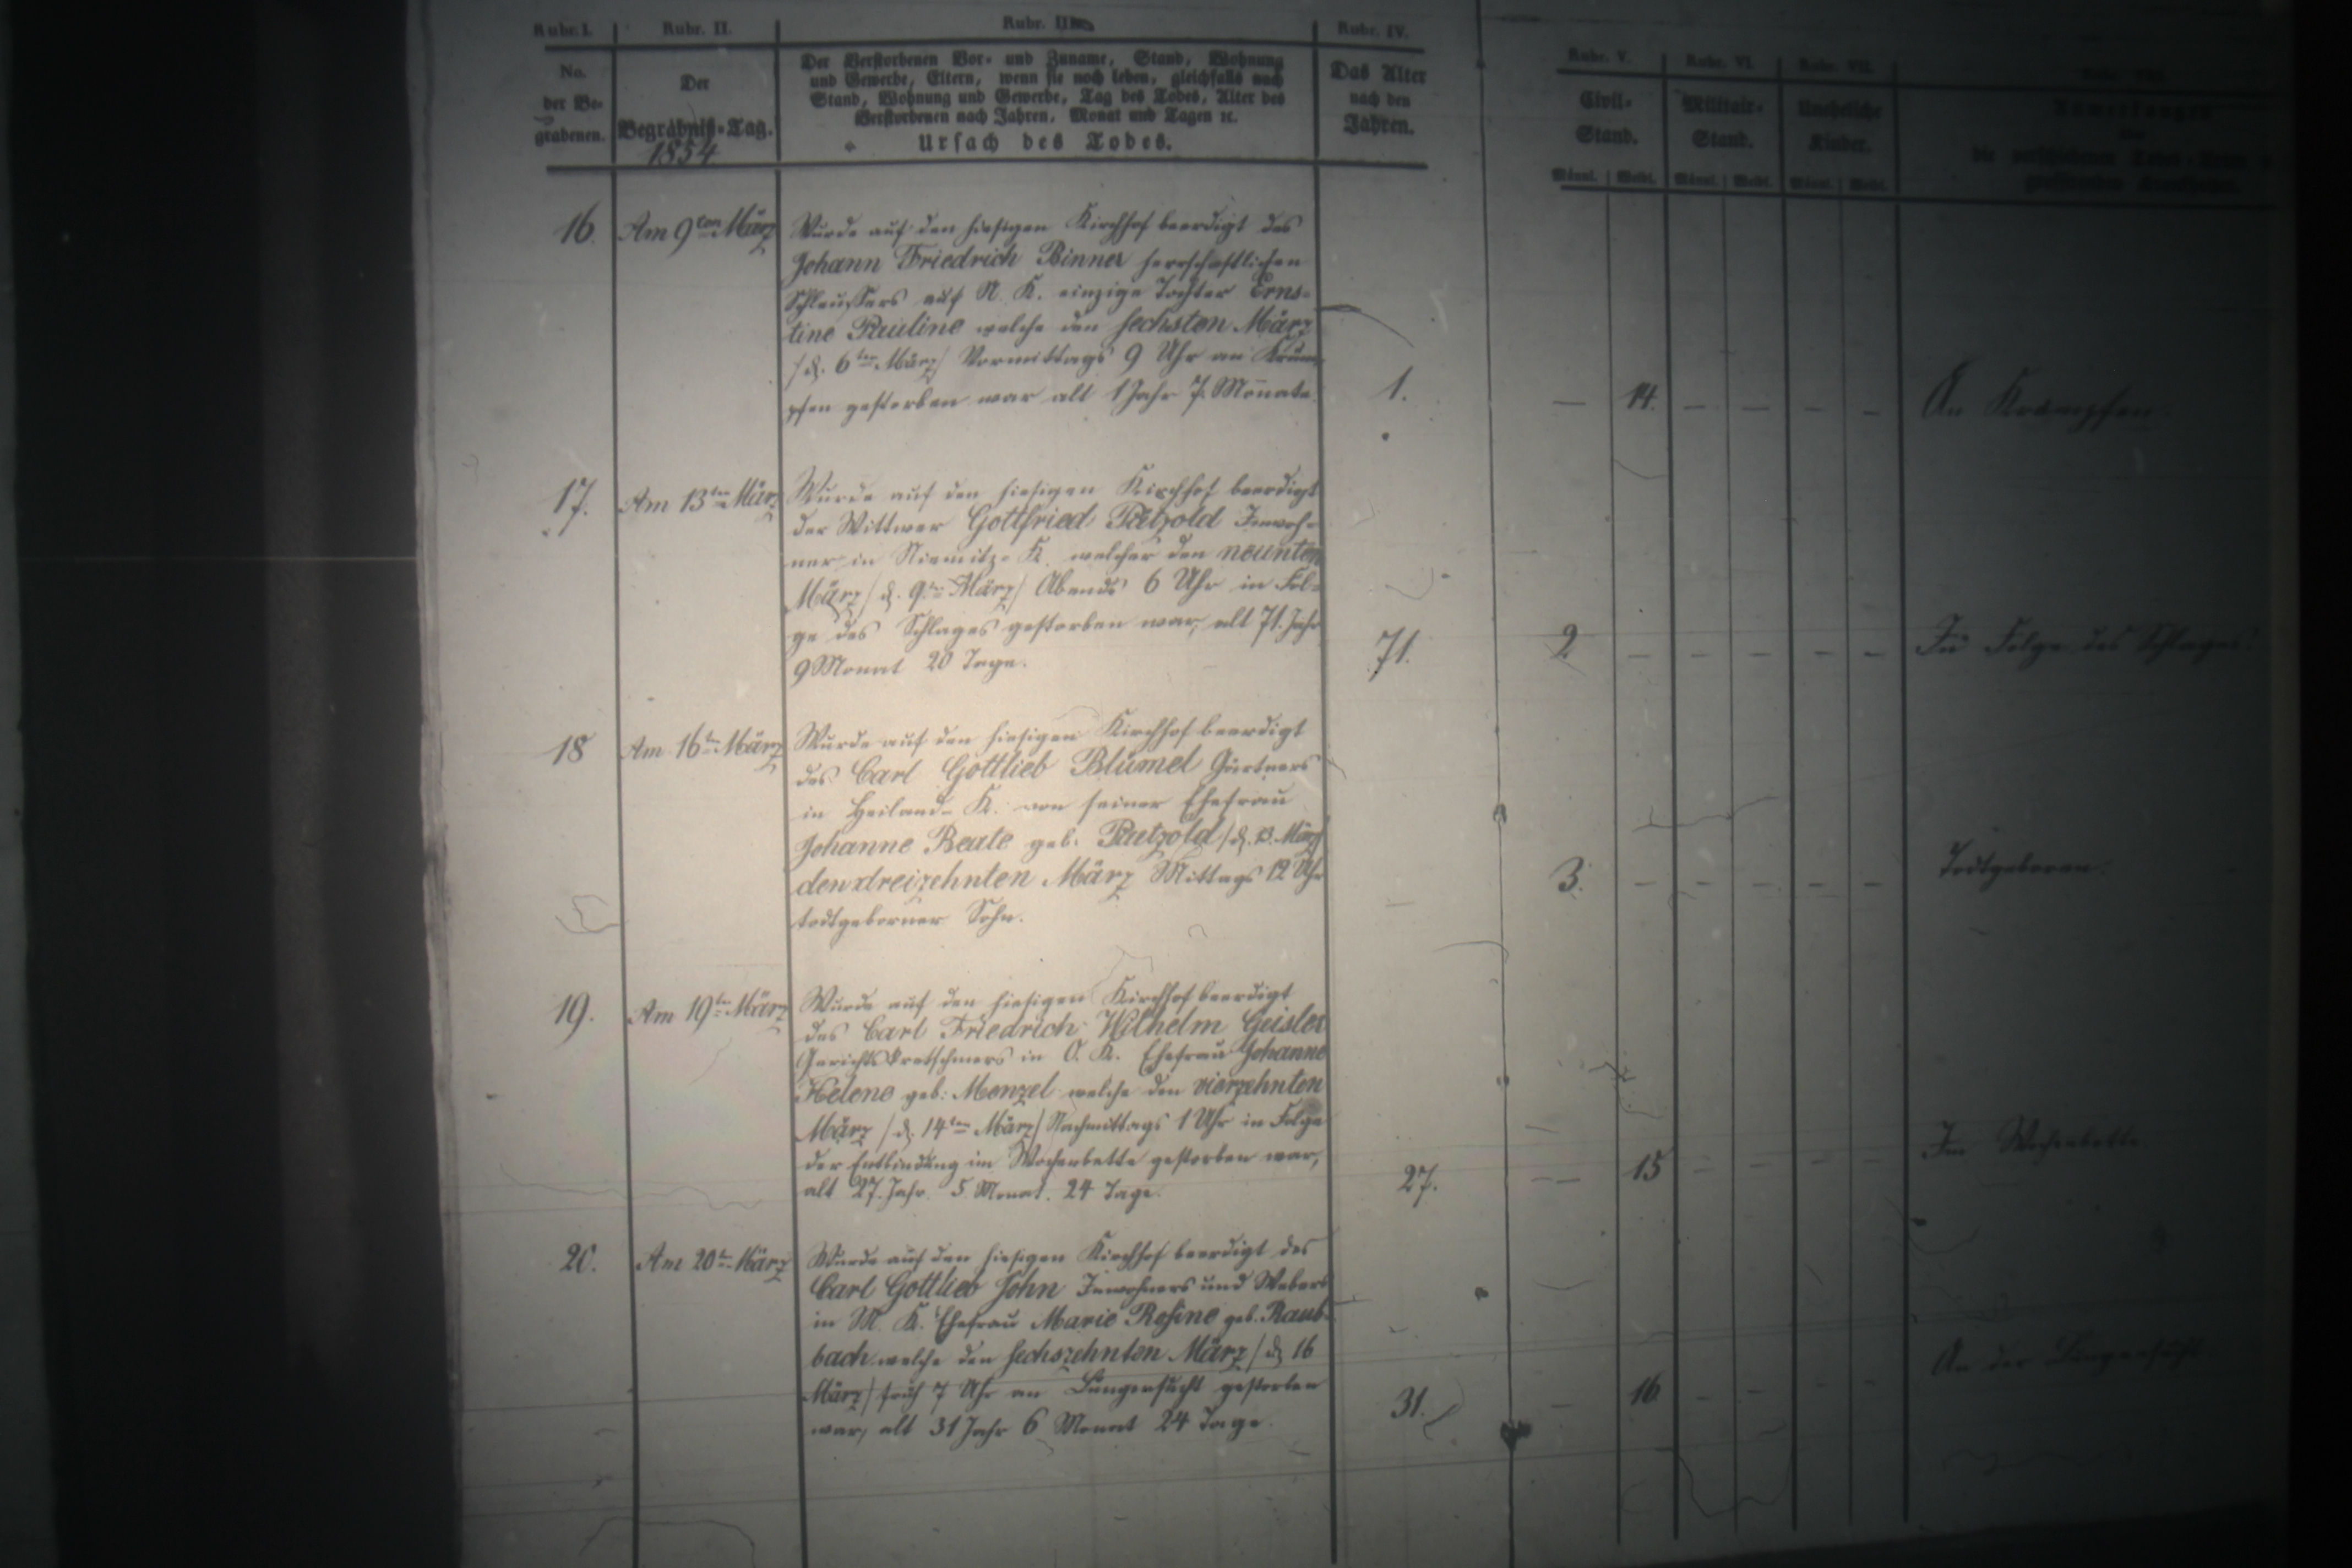 Rubr. I. Rubr. II. Rubr. III. Rubr. IV. Rubr. V. Rubr. VI. Rubr. VII.
No.
der Be-
grabenen.
Der
Begräbniß-Tag.
1854
Der Verstorbenen Vor- und Zuname, Stand, Wohnung
und Gewerbe, Eltern, wenn sie noch leben, gleichfalls nach
Stand, Wohnung und Gewerbe, Tag des Todes, Alter des
Verstorbenen nach Jahren, Monat und Tagen ꝛc.
Ursach des Todes.
Das Alter
nach den
Jahren.
Civil-
Stand.
Militair-
Stand.
Uneheliche
Kinder.
Männl. Weibl. Männl. Weibl. Männl. Weibl.
16. Am 9ten März
Wurde auf den hiesigen Kirchhof beerdigt des
Johann Friedrich Binner herrschaftlichen
Schleußers auf N. K. einzige Tochter Erns-
tine Pauline welche den sechsten März
/d. 6ten März/ Vormittags 9 Uhr an Kräm-
pfen gestorben war alt 1 Jahr 7. Monate.
1. — 14. — — — — An Krämpfen.
17. Am 13ten März
Wurde auf den hiesigen Kirchhof beerdigt
der Wittwer Gottfried Pätzold Inwoh-
ner in Niemitz-K. welcher den neunten
März /d. 9ten März/ Abends 6 Uhr in Fol-
ge des Schlages gestorben war, alt 71. Jahr
9 Monat 20 Tage.
71. 2 — — — — — In Folge des Schlages.
18 Am 16ten März
Wurde auf den hiesigen Kirchhof beerdigt
des Carl Gottlieb Blümel Gärtners
in Heiland-K. von seiner Ehefrau
Johanne Beate geb. Paetzold /d. 13. März/
den dreizehnten März Mittags 12 Uhr
todtgeborner Sohn.
3. — — — — — Todtgeboren.
19. Am 19ten März
Wurde auf den hiesigen Kirchhof beerdigt
des Carl Friedrich Wilhelm Geisler
Gerichtskretschmers in O. K. Ehefrau Johanne
Helene geb. Menzel welche den vierzehnten
März /d. 14ten März/ Nachmittags 1 Uhr in Folge
der Entbindung im Wochenbette gestorben war,
alt 27. Jahr. 5. Monat. 24 Tage.
27. — 15 — — — — Im Wochenbette.
20. Am 20ten März
Wurde auf den hiesigen Kirchhof beerdigt des
Carl Gottlieb John Inwohners und Webers
in M. K. Ehefrau Marie Rosine geb. Raub-
bach welche den sechszehnten März /d. 16
März/ früh 7 Uhr an Lungensucht gestorben
war, alt 31 Jahr 6 Monat 24 Tage.
31. — 16 — — — — An der Lungensucht.